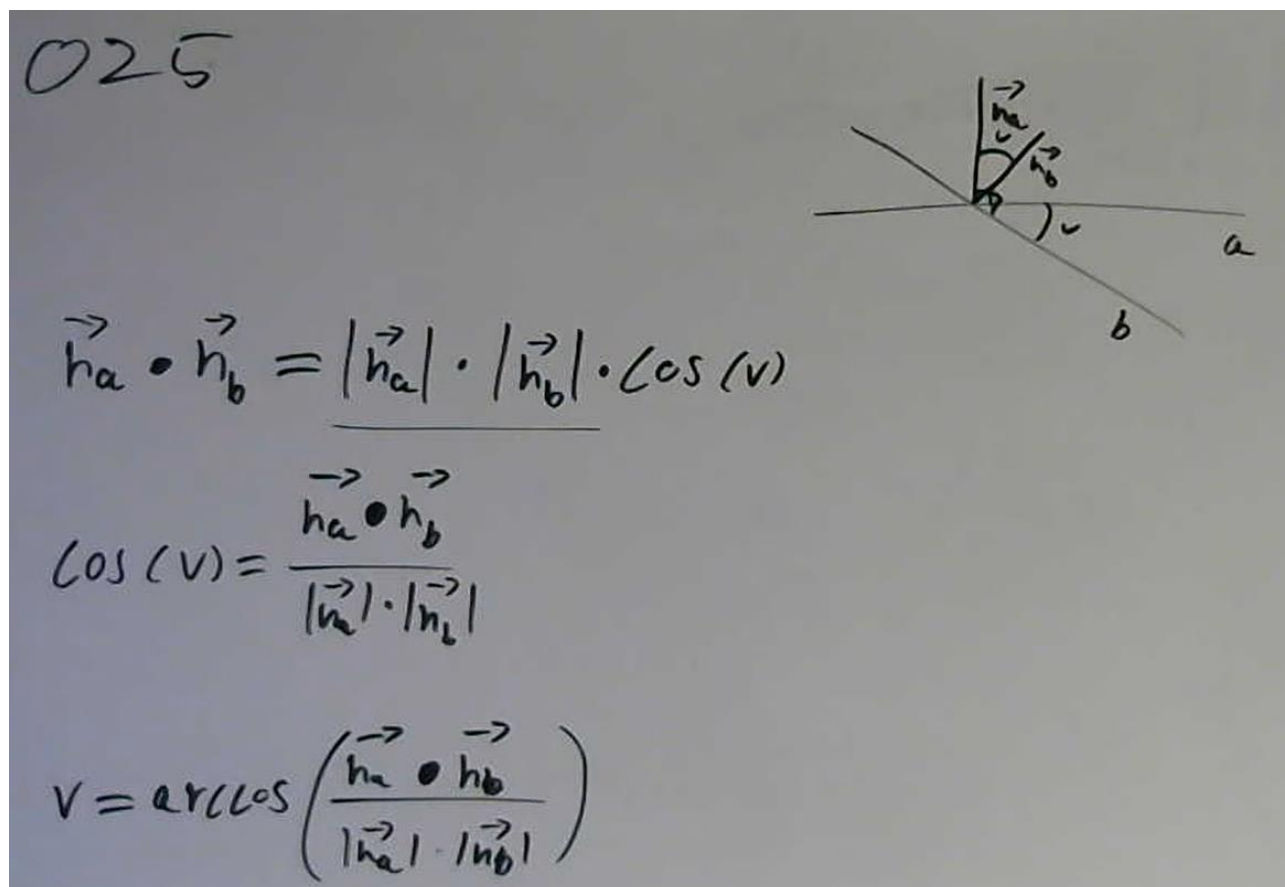 025
n⃗a
v
n⃗b
v
a
b
n⃗a • n⃗b = |n⃗a| · |n⃗b| · cos(v)
cos(v) = (n⃗a • n⃗b) / (|n⃗a| · |n⃗b|)
v = arccos((n⃗a • n⃗b) / (|n⃗a| · |n⃗b|))